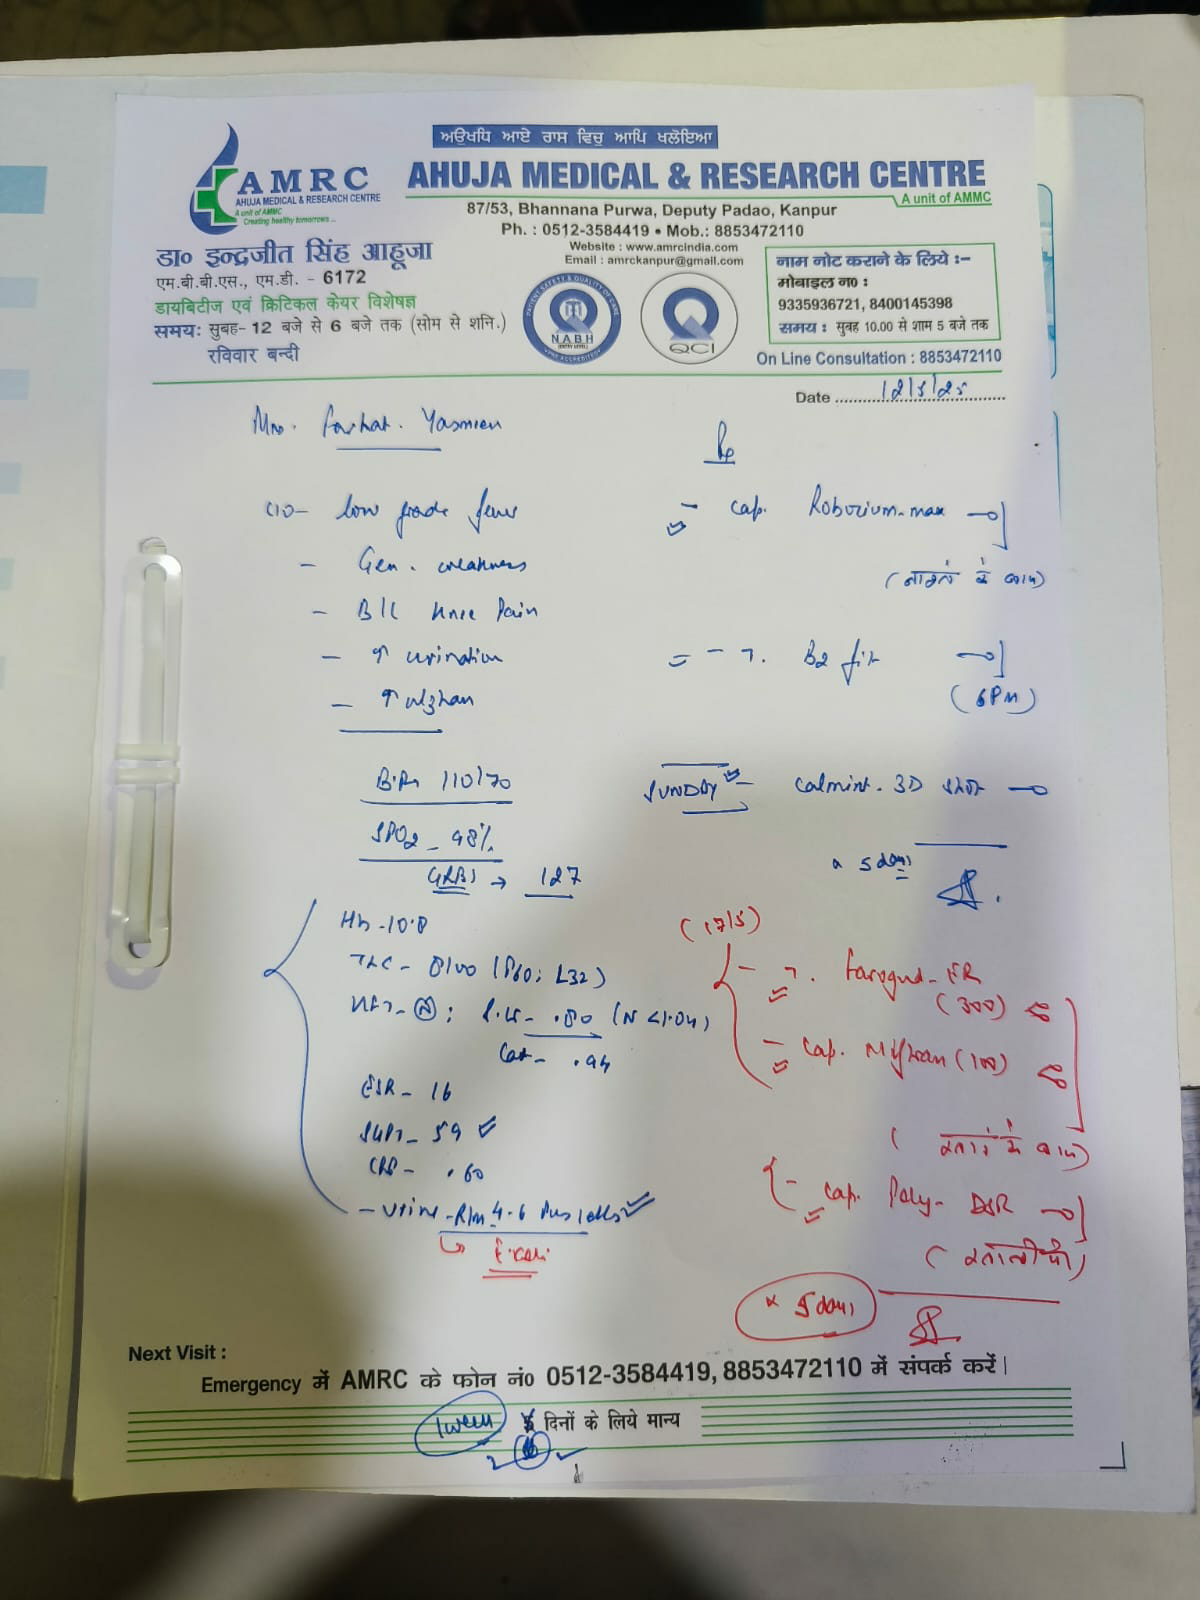 ਅਉਖਧਿ ਆਏ ਰਾਸ ਵਿਚੁ ਆਪਿ ਖਲੋਇਆ
AMRC
AHUJA MEDICAL & RESEARCH CENTRE
A unit of AMMC
Creating healthy tomorrows ...
AHUJA MEDICAL & RESEARCH CENTRE
A unit of AMMC
87/53, Bhannana Purwa, Deputy Padao, Kanpur
Ph. : 0512-3584419 • Mob.: 8853472110
Website : www.amrcindia.com
Email : amrckanpur@gmail.com
डा० इन्द्रजीत सिंह आहूजा
एम.बी.बी.एस., एम.डी. - 6172
डायबिटीज एवं क्रिटिकल केयर विशेषज्ञ
समय: सुबह- 12 बजे से 6 बजे तक (सोम से शनि.)
रविवार बन्दी
PATIENT SAFETY & QUALITY OF CARE
NABH
QCI
नाम नोट कराने के लिये :-
मोबाइल न० :
9335936721, 8400145398
समय : सुबह 10.00 से शाम 5 बजे तक
On Line Consultation : 8853472110
Date 12/5/25
Mrs. Farhat. Yasmien
Rx
C/O- low grade fever
- Gen. weakness
- B/L knee Pain
- ↑ urination
- cap. Roborium-max
- T. B2 fit
(6PM)
B.P. 110/70
SPO2 - 98%
GRBS → 127
SUNDAY - Calmint. 3D shot
x 5 days
Hb - 10.8
TLC - 8100 (P60; L32)
KFT - N; S.U. - .80 (N <1.04)
.94
ESR - 16
SGPT - 59
CRP - .60
- Urine - R/m 4-6 Pus cells
E. coli
(17/5)
(300)
- Cap.
(100)
- Cap. DSR
x 5 days
Next Visit :
Emergency में AMRC के फोन नं० 0512-3584419, 8853472110 में संपर्क करें|
1 week दिनों के लिये मान्य